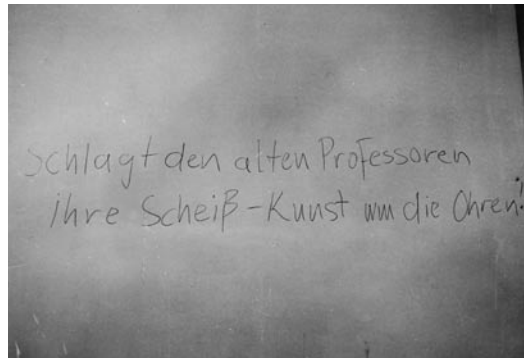 Schlagt den alten Professoren
ihre Scheiß-Kunst um die Ohren!